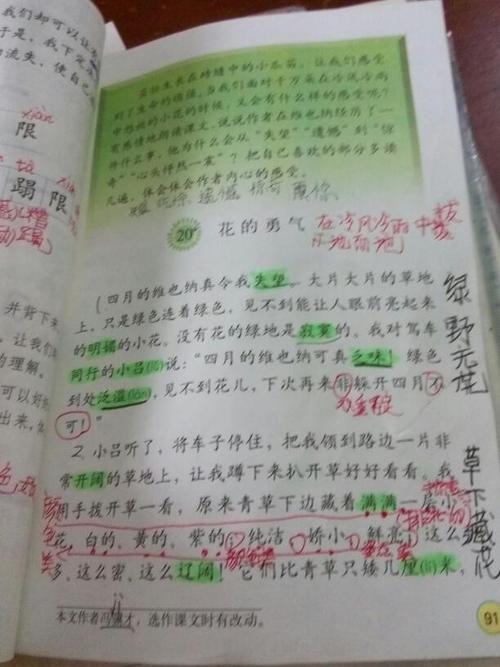 我们却可以让
于是，我下定
的流失，使自己
xiàn
限
tà
蹋 限
并背下来
让我们
的理解。
可以好
出来，
茁壮生长在砖缝中的小瓜苗，让我们感受
到了生命的顽强。当我们面对千万朵在冷风冷雨
中怒放的小花的时候，又会有什么样的感受呢？
有感情地朗读课文，说说作者在维也纳经历了一
件什么事，他为什么会从“失望”“遗憾”到“惊
奇”“心头怦然一震”？把自己喜欢的部分多读
几遍，体会体会作者内心的感受。
20 花的勇气
在冷风冷雨中
四月的维也纳真令我失望。大片大片的草地
上，只是绿色连着绿色，见不到能让人眼前亮起来
的明媚的小花。没有花的绿地是寂寞的。我对驾车
同行的小吕(lǚ)说：“四月的维也纳可真乏味！绿色
到处泛滥(làn)，见不到花儿，下次再来非躲开四月不
可！”
绿野无花
2 小吕听了，将车子停住，把我领到路边一片非
常开阔的草地上，让我蹲下来扒开草好好看看。我
用手拨开草一看，原来青草下边藏着满满一层小
花，白的、黄的、紫的；纯洁、娇小、鲜亮；这么
多、这么密、这么辽阔！它们比青草只矮几厘(lí)米，
草下藏花
本文作者冯骥才，选作课文时有改动。
91